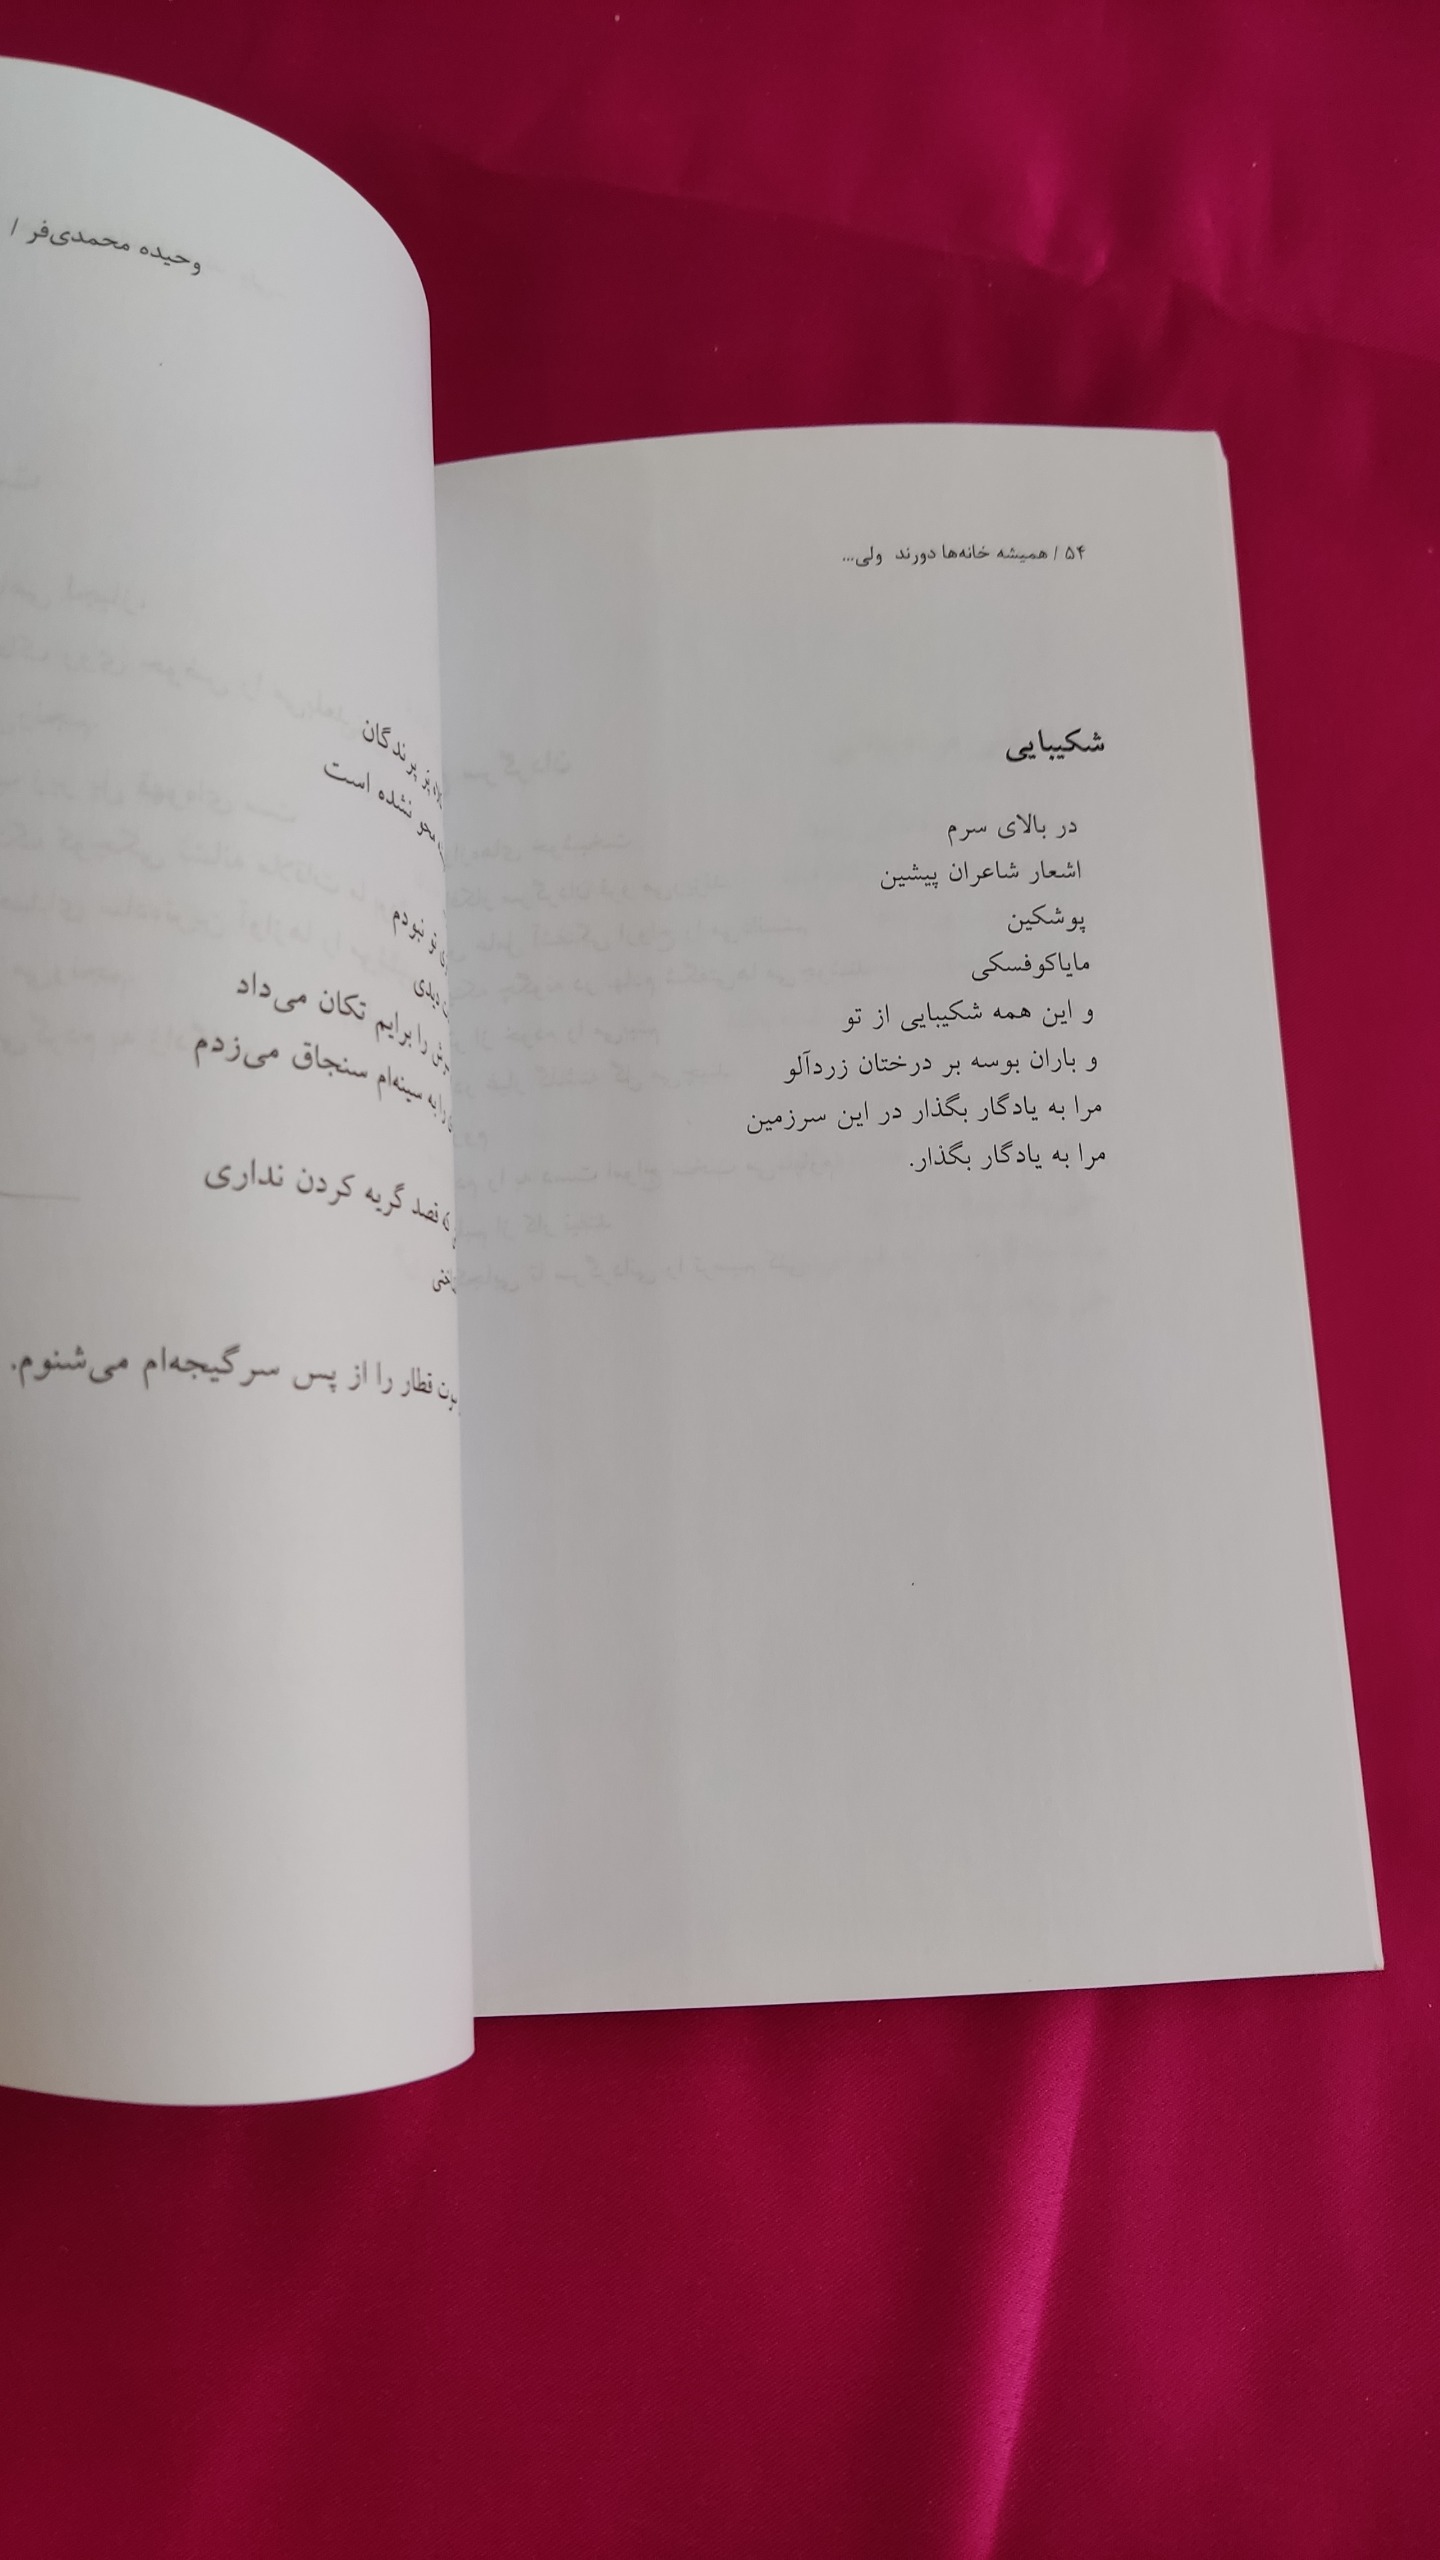 ۵۴ / همیشه خانه‌ها دورند ولی...
شکیبایی
در بالای سرم
اشعار شاعران پیشین
پوشکین
مایاکوفسکی
و این همه شکیبایی از تو
و باران بوسه بر درختان زردآلو
مرا به یادگار بگذار در این سرزمین
مرا به یادگار بگذار.
وحیده محمدی‌فر /
پرندگان
محو نشده است
تو نبودم
دیدی
را برایم تکان می‌داد
را به سینه‌ام سنجاق می‌زدم
قصد گریه کردن نداری
قطار را از پس سرگیجه‌ام می‌شنوم.